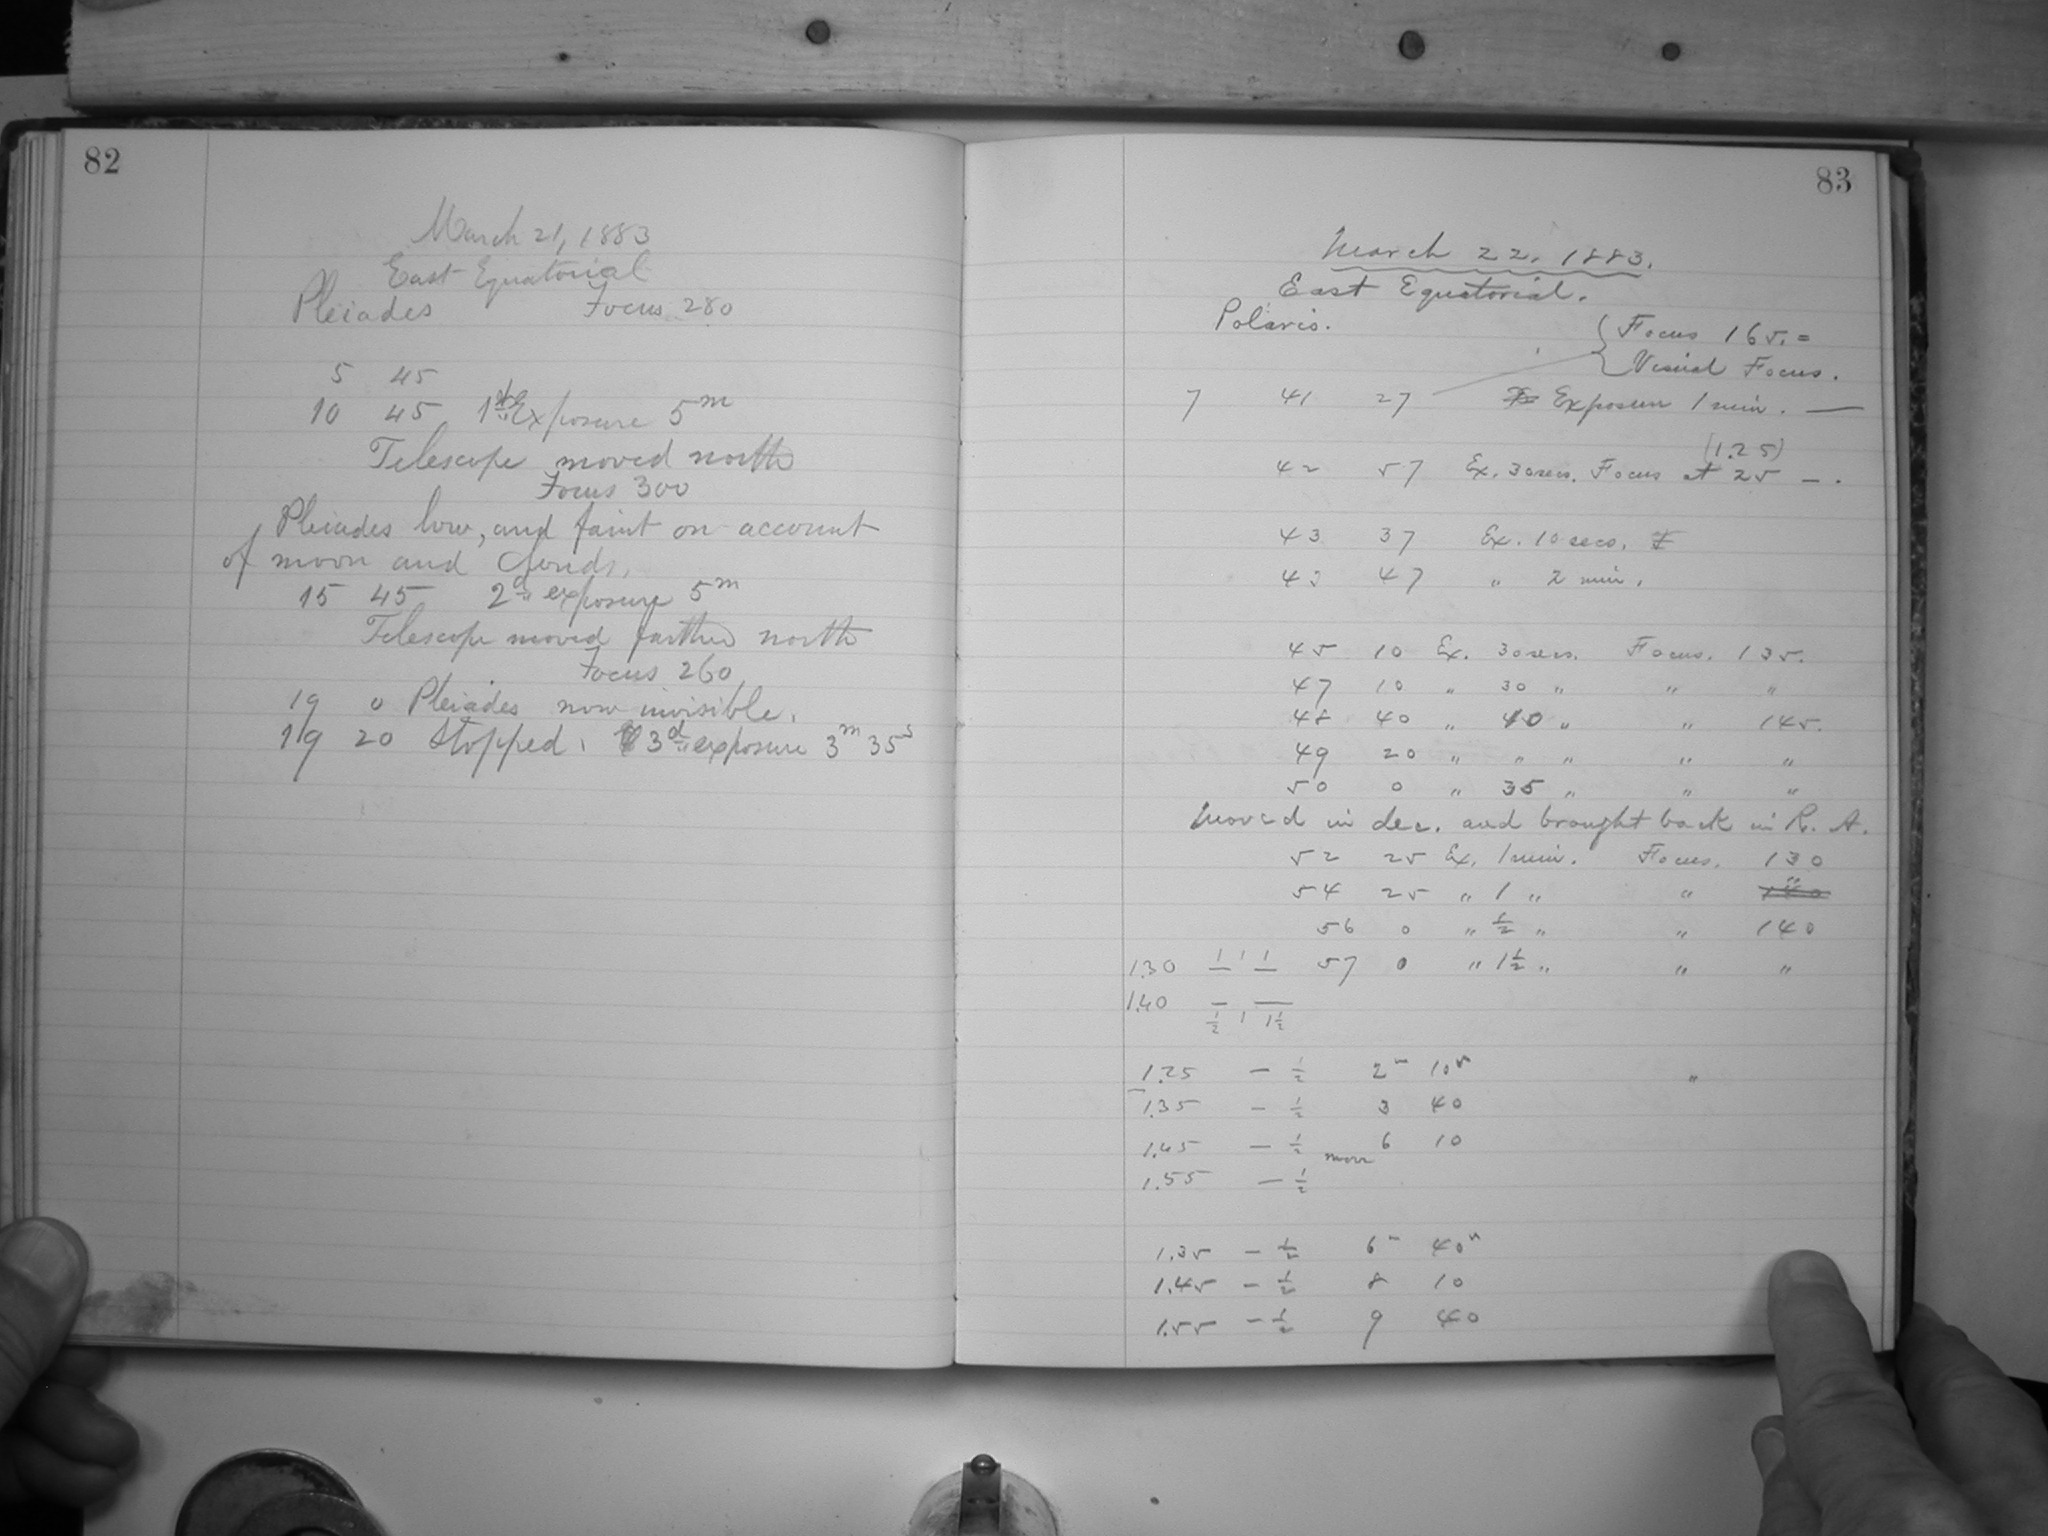 82
March 21, 1883
East Equatorial
Pleiades Focus 280
5 45
10 45 1st Exposure 5m
Telescope moved north
Focus 300
Pleiades low, and faint on account
of moon and clouds.
15 45 2d exposure 5m
Telescope moved farther north
Focus 260
19 0 Pleiades now invisible.
19 20 Stopped. 3d exposure 3m 35s
83
March 22, 1883.
East Equatorial.
Polaris.
Focus 165. =
Visual Focus.
7 41 27 Exposure 1 min. —
(1.25)
42 57 Ex. 30 secs. Focus at 25 — .
43 37 Ex. 10 secs.
43 47 " 2 min.
45 10 Ex. 30 secs. Focus. 135.
47 10 " 30 " " "
48 40 " 40 " " 145.
49 20 " " " " "
50 0 " 35 " " "
Moved in dec. and brought back in R. A.
52 25 Ex. 1 min. Focus. 130
54 25 " 1 " " "
56 0 " ½ " " 140
1.30 1 1 1 57 0 " 1½ " " "
1.40 — —
½ 1 1½
1.25 — ½ 2m 10s "
1.35 — ½ 3 40
1.45 — ½ 6 10
1.55 — ½
1.35 — ½ 6m 40s
1.45 — ½ 8 10
1.55 — ½ 9 40